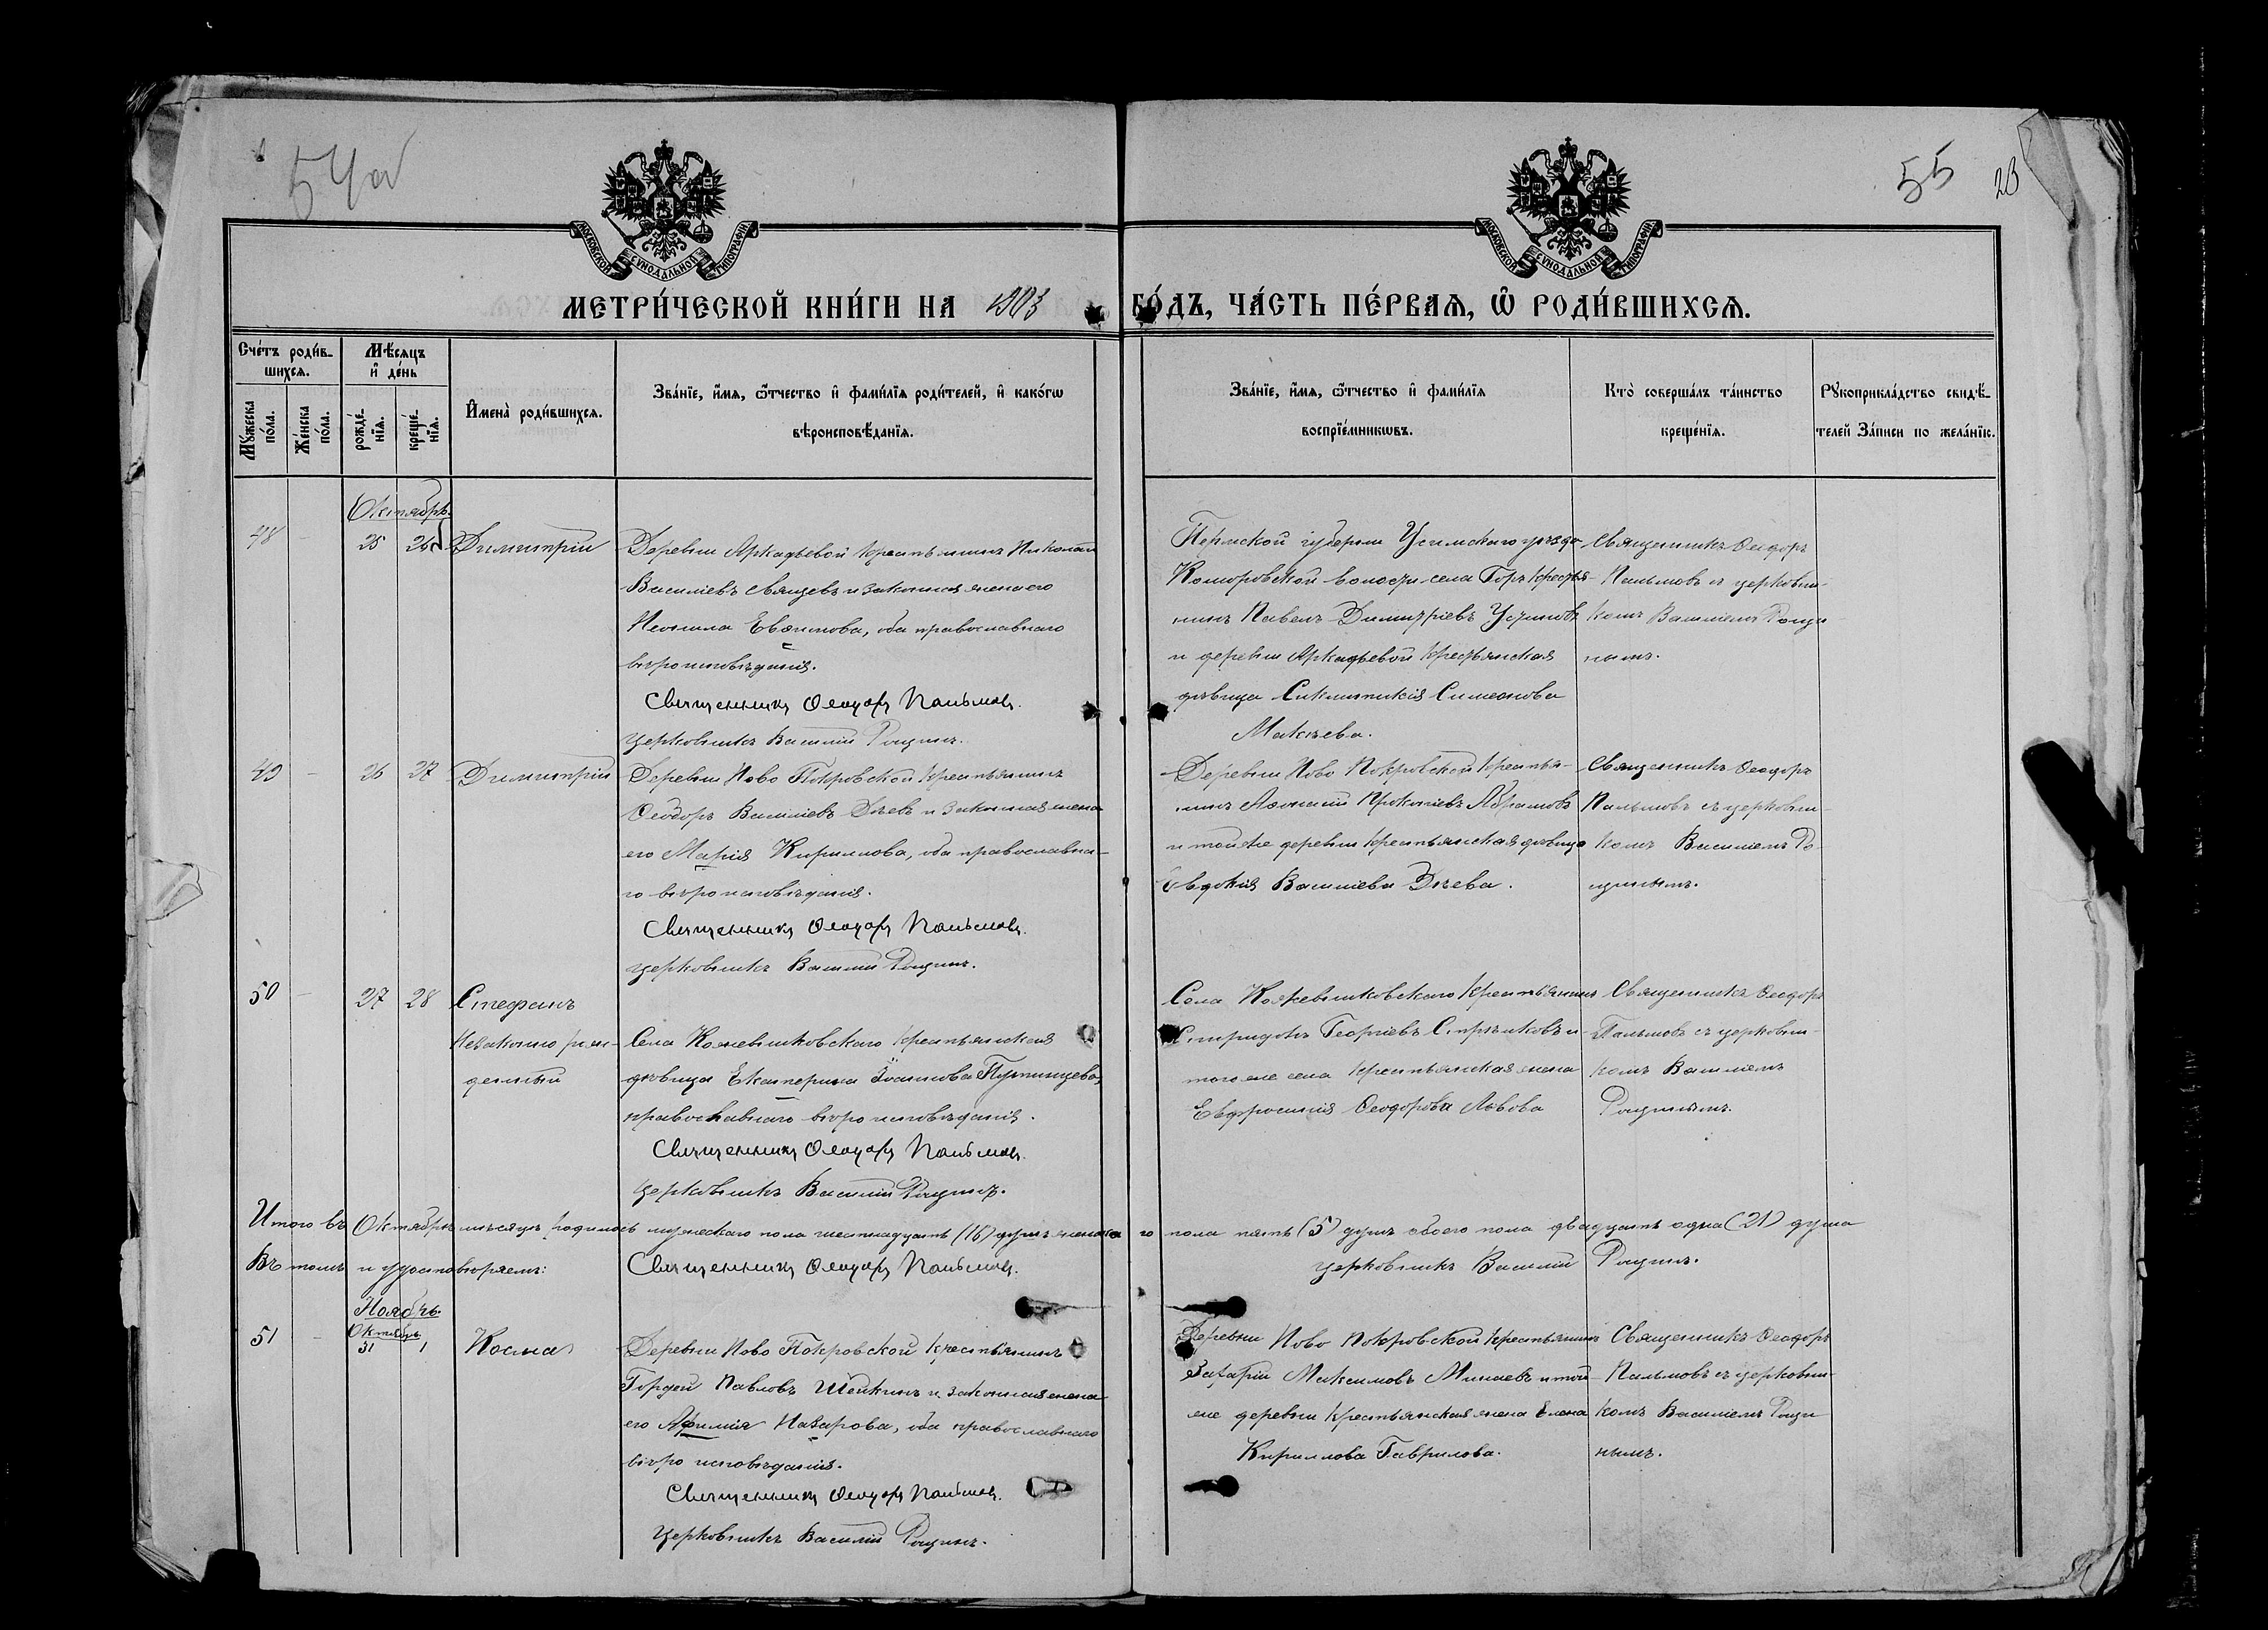 54об
55
28
МОСКОВСКОЙ СѴНОДАЛЬНОЙ ТИПОГРАФІИ
МОСКОВСКОЙ СѴНОДАЛЬНОЙ ТИПОГРАФІИ
МЕТРИ́ЧЕСКОЙ КНИ́ГИ НА 1903 ГО́ДЪ, ЧА́СТЬ ПЕ́РВАѦ, Ѽ РОДИ́ВШИХСѦ.
Сче́тъ роди́в-
шихсѧ.
Мꙋ́жеска по́ла.
Же́нска по́ла.
Мѣ́сѧцъ и҆ де́нь
рожде́-нїѧ.
креще́-нїѧ.
И҆мена̀ роди́вшихсѧ.
Зва́нїе, и҆́мѧ, ѻ҆́тчество и҆ фамѝлїѧ роди́телей, и҆ како́гѡ
вѣроисповѣ́данїѧ.
Зва́нїе, и҆́мѧ, ѻ҆́тчество и҆ фамѝлїѧ
воспрїе́мникѡвъ.
Кто̀ соверша́лъ та́инство
креще́нїѧ.
Рꙋкоприкла́дство свидѣ́-
телей За́писи по жела́нїю.
Октябрь.
48 - 25 26 Димитрій
Деревни Аркадьевой крестьянинъ Николай
Василіевъ Свяцевъ и законная жена его
Неонила Евѳимова, оба православнаго
вѣроисповѣданія.
Священникъ Ѳеодоръ Пальмовъ.
Церковникъ Василій Рощинъ.
Пермской губерніи Усинскаго уѣзда
Коморовской волости села Горъ крестья-
нинъ Павелъ Димитріевъ Устиновъ
и деревни Аркадьевой крестьянская
дѣвица Сиклитикія Симеонова
Макѣева.
Священникъ Ѳеодоръ
Пальмовъ съ церковни-
комъ Василіемъ Рощи-
нымъ.
49 - 26 27 Димитрій
Деревни Ново Покровской крестьянинъ
Ѳеодоръ Василіевъ Зѣевъ и законная жена
его Марія Кириллова, оба православна-
го вѣроисповѣданія.
Священникъ Ѳеодоръ Пальмовъ.
Церковникъ Василій Рощинъ.
Деревни Ново Покровской крестья-
нинъ Аѳонасій Прокопіевъ Абрамовъ
и той же деревни крестьянская дѣвица
Евдокія Василіева Зѣева.
Священникъ Ѳеодоръ
Пальмовъ съ церковни-
комъ Василіемъ Ро-
щинымъ.
50 - 27 28 Стефанъ
Незаконно рож-
денный
Села Кожевниковскаго крестьянская
дѣвица Екатерина Іоаннова Путинцева,
православнаго вѣроисповѣданія.
Священникъ Ѳеодоръ Пальмовъ.
Церковникъ Василій Рощинъ.
Села Кожевниковскаго крестьянинъ
Спиридонъ Георгіевъ Стрѣлковъ и
того же села крестьянская жена
Евфросинія Ѳеодорова Львова
Священникъ Ѳеодоръ
Пальмовъ съ церковни-
комъ Василіемъ
Рощинымъ.
Итого въ Октябрѣ мѣсяцѣ родилось мужескаго пола шестнадцать (16) душъ женска го пола пять (5) душъ обоего пола двадцать одна (21) душа
Въ томъ и удостовѣряемъ: Священникъ Ѳеодоръ Пальмовъ. Церковникъ Василій Рощинъ.
Ноябрь.
51 - Октябрь 31 1 Косма
Деревни Ново Покровской крестьянинъ
Гордей Павловъ Шейкинъ и законная жена
его Афимія Назарова, оба православнаго
вѣро исповѣданія.
Священникъ Ѳеодоръ Пальмовъ.
Церковникъ Василій Рощинъ.
Деревни Ново Покровской крестьянинъ
Захарій Максимовъ Минаевъ и той
же деревни крестьянская жена Елена
Кириллова Гаврилова.
Священникъ Ѳеодоръ
Пальмовъ съ церковни-
комъ Василіемъ Рощи
нымъ.